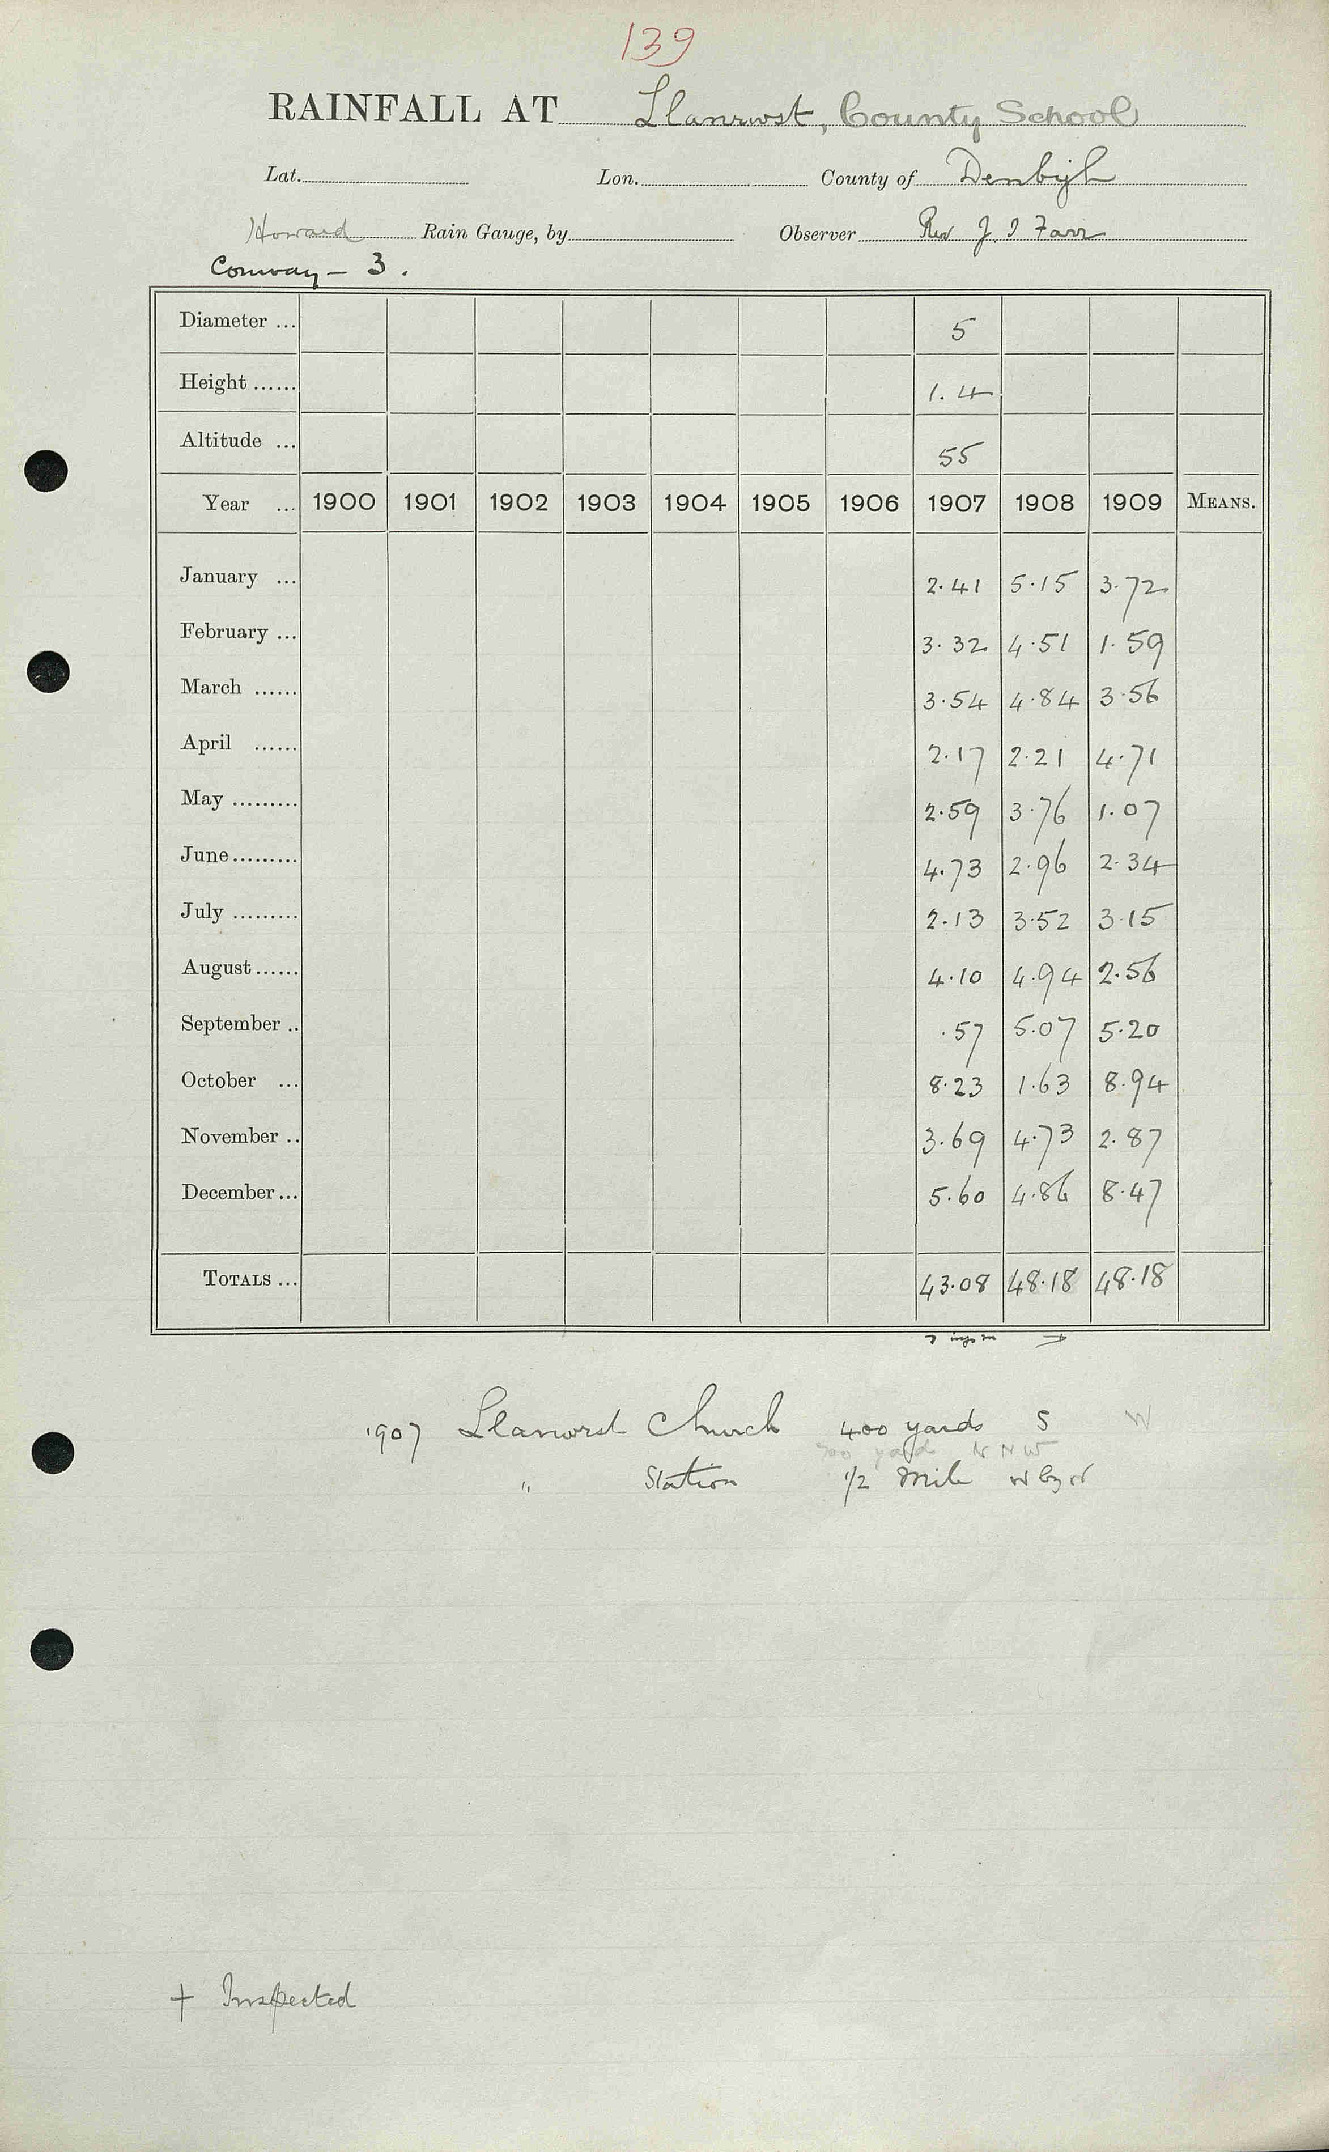 139
RAINFALL AT Llanrwst, County School
Lat. Lon. County of Denbigh
Howard Rain Gauge, by Observer Rev J. I Farr
Conway – 3.
Diameter ... 5
Height ...... 1.4
Altitude ... 55
Year ... 1900 1901 1902 1903 1904 1905 1906 1907 1908 1909 MEANS.
January ... 2.41 5.15 3.72
February ... 3.32 4.51 1.59
March ...... 3.54 4.84 3.56
April ...... 2.17 2.21 4.71
May ......... 2.59 3.76 1.07
June......... 4.73 2.96 2.34
July ......... 2.13 3.52 3.15
August...... 4.10 4.94 2.56
September .. .57 5.07 5.20
October ... 8.23 1.63 8.94
November .. 3.69 4.73 2.87
December... 5.60 4.86 8.47
TOTALS ... 43.08 48.18 48.18
1907 Llanwrst Church 400 yards S W
yard NNW
" Station 1/2 Mile W by N
† Inspected